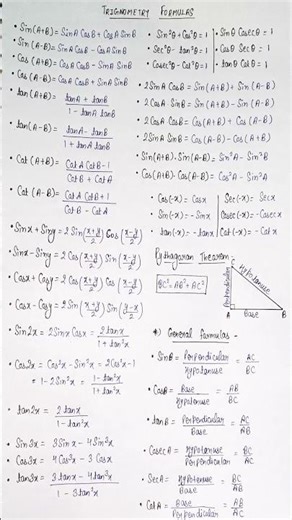 TRIGNOMETRY FORMULAS
• Sin(A+B)= SinA CosB + CosA SinB
• Sin(A-B)= SinA CosB - CosA SinB
• Cos(A+B)= CosA CosB - SinA SinB
• Cos(A-B)= CosA CosB + SinA SinB
• tan(A+B)= tanA + tanB / 1 - tanA tanB
• tan(A-B)= tanA - tanB / 1 + tanA tanB
• Cat(A+B)= CatA CatB - 1 / CatB + CatA
• Cat(A-B)= CatA CatB + 1 / CatB - CatA
• Sinx + Siny = 2 Sin(x+y/2) Cos(x-y/2)
• Sinx - Siny = 2 Cos(x+y/2) Sin(x-y/2)
• Cosx + Cosy = 2 Cos(x+y/2) Cos(x-y/2)
• Cosx - Cosy = 2 Sin(x+y/2) Sin(y-x/2)
• Sin2x = 2 Sinx Cosx = 2 tanx / 1 + tan²x
• Cos2x = Cos²x - Sin²x = 2Cos²x - 1
= 1 - 2Sin²x = 1 - tan²x / 1 + tan²x
• tan2x = 2 tanx / 1 - tan²x
• Sin3x = 3Sinx - 4Sin³x
• Cos3x = 4Cos³x - 3Cosx
• tan3x = 3tanx - 4tan³x / 1 - 3tan²x
• Sin²θ + Cos²θ = 1
• Sec²θ - tan²θ = 1
• Cosec²θ - Cat²θ = 1
• Sinθ Cosecθ = 1
• Cosθ Secθ = 1
• tanθ Catθ = 1
• 2 SinA CosB = Sin(A+B) + Sin(A-B)
• 2 CosA SinB = Sin(A+B) - Sin(A-B)
• 2 CosA CosB = Cos(A+B) + Cos(A-B)
• 2 SinA SinB = Cos(A-B) - Cos(A+B)
• Sin(A+B).Sin(A-B) = Sin²A - Sin²B
• Cos(A+B).Cos(A-B) = Cos²A - Sin²B
Cos(-x) = Cosx
Sin(-x) = -Sinx
tan(-x) = -tanx
Sec(-x) = Secx
Cosec(-x) = -Cosecx
Cat(-x) = -Catx
Pythagoran Theorem
BC² = AB² + AC²
C
Perpendicular
Hypotanuse
A
Base
B
*) General formulas -
• Sinθ = Perpendicular / Hypotanuse = AC / BC
• CosB = Base / Hypotanuse = AB / BC
• tanB = Perpendicular / Base = AC / AB
• CosecA = Hypotanuse / Perpendicular = BC / AC
• SecA = Hypotanuse / Base = BC / AB
• CatA = Base / Perpendicular = AB / AC